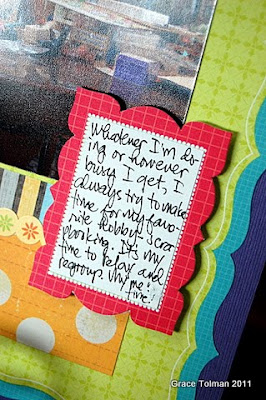 Whatever I'm do-
ing or however
busy I get, I
always try to make
time for my favo-
rite hobby: scrap
booking. It's my
time to relax and
regroup. My me!
time!
Grace Tolman 2011